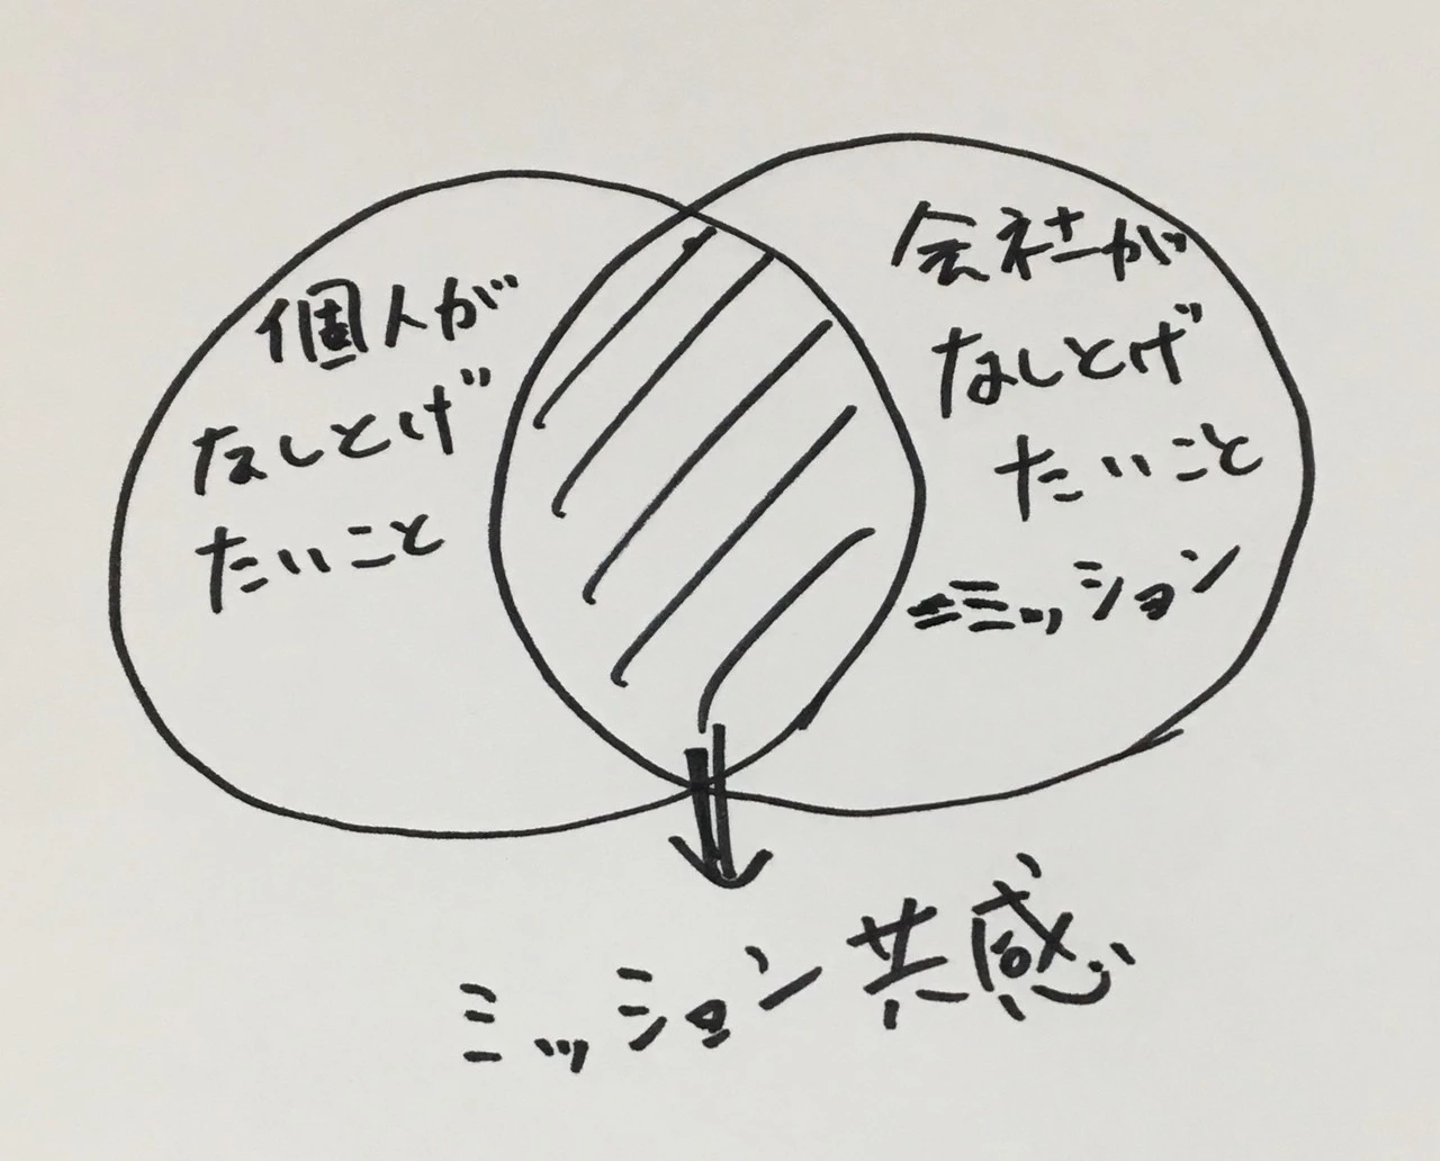 個人が
なしとげ
たいこと
会社が
なしとげ
たいこと
=ミッション
ミッション共感